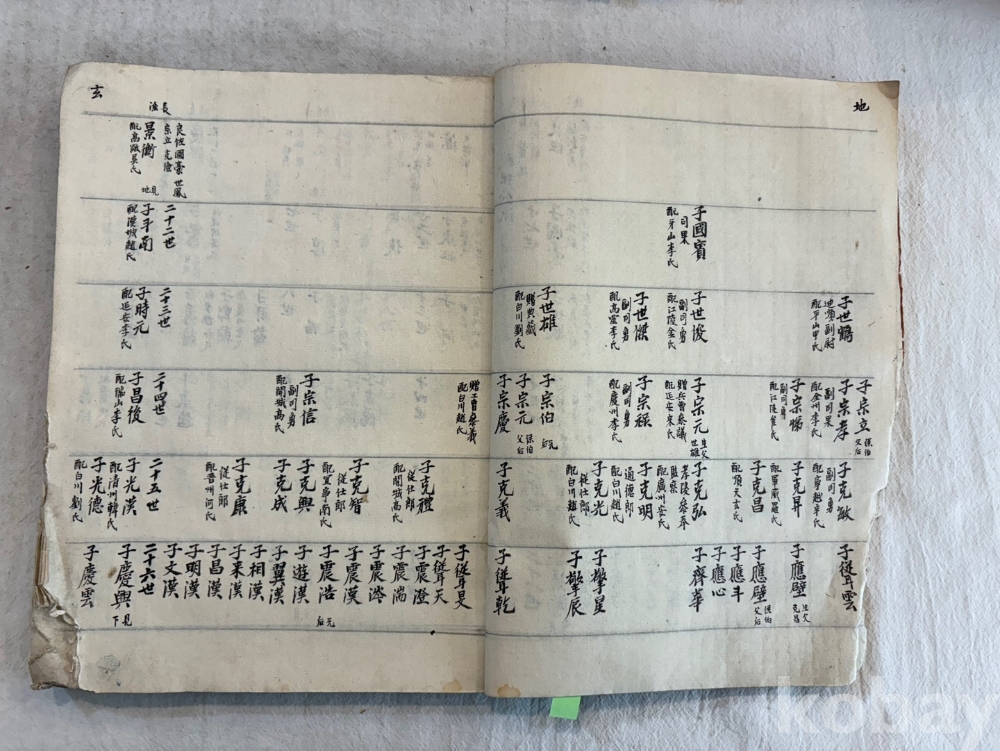 地
子國賓
司果
配牙山李氏
子世鶴
迪順副尉
配平山申氏
子世俊
副司勇
配江陵金氏
子世傑
副司勇
配高靈李氏
子世雄
贈典籤
配白川劉氏
子宗立
系伯父后
子宗孝
副司果
配全州李氏
子宗悌
副司勇
配江陵崔氏
子宗元
生父世雄
贈兵曹參議
配延安宋氏
子宗祿
副司勇
配慶州李氏
子宗伯
无后
子宗元
系伯父后
子宗慶
贈工曹參議
配白川趙氏
子宗信
副司勇
配開城高氏
子克敏
副司勇
子克昇
子克昌
配順天玄氏
子克弘
孝陵參奉
監察
配廣州安氏
子克明
通德郎
配白川趙氏
子克光
從仕郎
配白川趙氏
子克義
子克禮
從仕郎
配開城高氏
子克智
從仕郎
配宜寧南氏
子克興
子克成
子克康
從仕郎
配晉州河氏
子從雲
子應壁
生父克昌
子應壁
系伯父后
子應斗
子應心
子齊華
子擎星
子擎辰
子從乾
子從旻
子從天
子震澄
子震湍
子震澣
子震漢
子震浩
无后
子遊漢
子翼漢
子相漢
子來漢
子昌漢
子明漢
子文漢
玄
長湍
良佐國豪世鳳
宗立克儉
景衡
配高敞吳氏
見地
二十二世
子斗南
配漢城趙氏
二十三世
子時元
配延安李氏
二十四世
子昌後
配瑞山李氏
二十五世
子光漢
配清州韓氏
子光德
配白川劉氏
二十六世
子慶興
見下
子慶雲
kobay